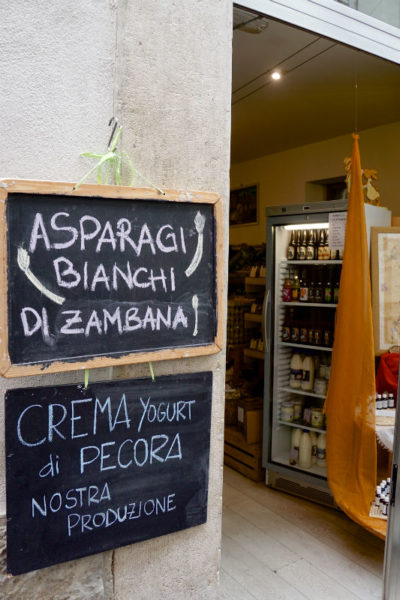 ASPARAGI
BIANCHI
DI ZAMBANA!
CREMA YOGURT
di PECORA
NOSTRA
PRODUZIONE